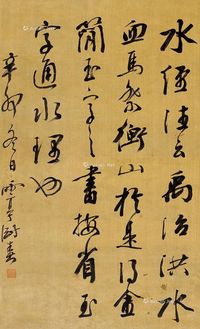 水經注云禹治洪水
血馬祭衡山於是得金
簡玉字之書按省玉
字通水理也
辛卯冬日